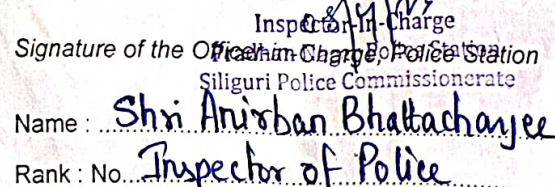 Inspector-In-Charge
Signature of the Officer-in-Charge, Police Station
Pradhan Nagar Police Station
Siliguri Police Commissionerate
Name : Shri Anirban Bhattacharjee
Rank : No. Inspector of Police